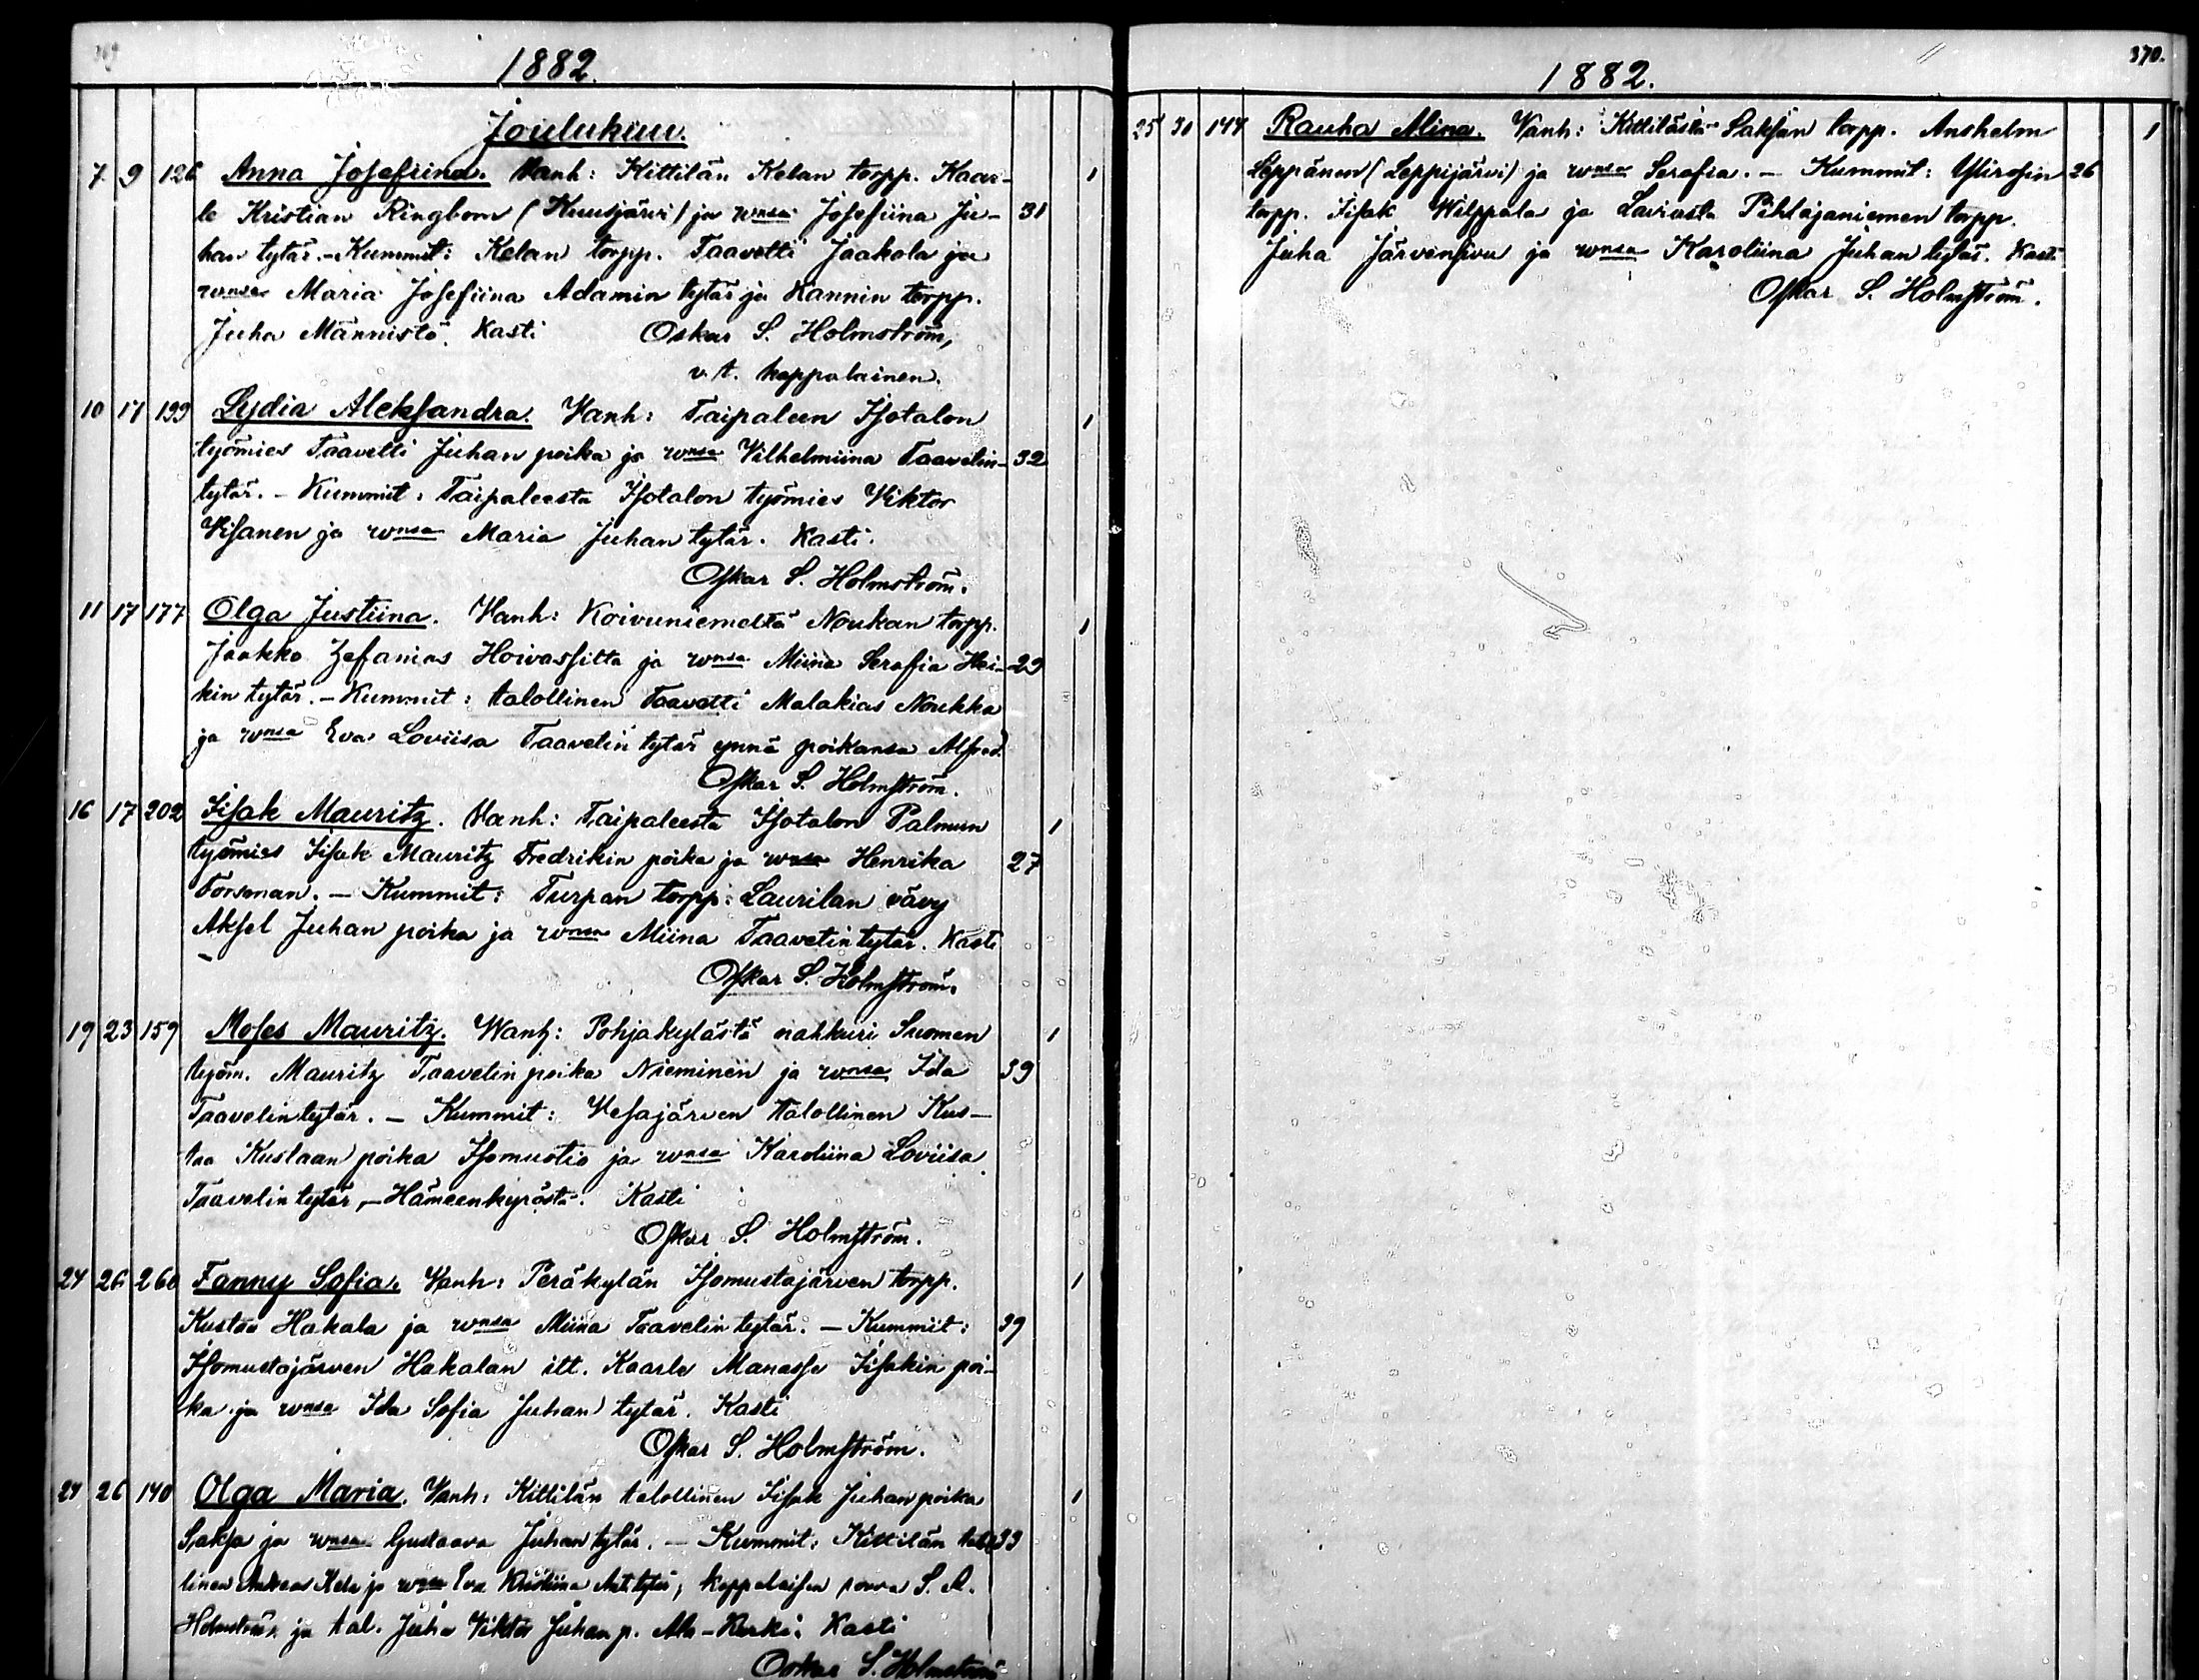 369
1882.
Joulukuu.
7 9 126 Anna Josefiina. Vanh: Kittilän Kelan torpp. Kaar- 1
le Kristian Ringbom (Kuusjärvi) ja wmsa Josefiina Ju- 31
han tytär. - Kummit: Kelan torpp. Taavetti Jaakola ja
wmsa Maria Josefiina Adamin tytär ja Kannin torpp.
Juha Männistö. Kasti Oskar S. Holmström,
v.t. kappalainen.
10 17 199 Lydia Aleksandra. Vanh: Taipaleen Isotalon 1
työmies Taavetti Juhan poika ja wmsa Vilhelmiina Taavetin- 32
tytär. - Kummit: Taipaleesta Isotalon työmies Viktor
Wisanen ja wmsa Maria Juhan tytär. Kasti.
Oskar S. Holmström.
11 17 177 Olga Justiina. Vanh: Koivuniemeltä Noukan torpp. 1
Jaakko Zefanias Hoivassilta ja wmsa Miina Serafia Hei- 29
kin tytär. - Kummit: talollinen Taavetti Malakias Noukka
ja wmsa Eva Loviisa Taavetin tytär ynnä poikansa Alfred.
Oskar S. Holmström.
16 17 202 Iisak Mauritz. Vanh: Taipaleesta Isotalon Palmun 1
työmies Iisak Mauritz Fredrikin poika ja wmsa Henrika 27
Forsman. - Kummit: Turpan torpp: Laurilan vävy
Aksel Juhan poika ja wmsa Miina Taavetin tytär. Kasti
Oskar S. Holmström.
19 23 159 Moses Mauritz. Wanh: Pohjakylästä nahkuri Suomen 1
työm. Mauritz Taavetin poika Nieminen ja wmsa Ida 39
Taavetin tytär. - Kummit: Vesajärven talollinen Kus-
taa Kustaan poika Isomustio ja wmsa Karoliina Loviisa
Taavetin tytär, - Hämeenkyröstä. Kasti
Oskar S. Holmström.
24 26 260 Fanny Sofia. Vanh: Peräkylän Isomustajärven torpp. 1
Kustaa Hakala ja wmsa Miina Taavetin tytär. - Kummit: 39
Isomustajärven Hakalan itt. Kaarle Manasse Iisakin poi-
ka ja wmsa Ida Sofia Juhan tytär. Kasti
Oskar S. Holmström.
24 26 140 Olga Maria. Vanh: Kittilän talollinen Iisak Juhan poika 1
Saksa ja wmsa Gustaava Juhan tytär. - Kummit: Kittilän talol 33
linen Andreas Kela ja wmsa Eva Kristiina Antin tytär, kappalaisen rouva S. A.
Holmström ja tal. Juha Viktor Juhan p. Ala-Kerki. Kasti
Oskar S. Holmström
370.
1882.
25 30 144 Rauha Mina. Vanh: Kittilästä Saksan torpp. Anshelm 1
Leppänen (Leppijärvi) ja wmsa Serafia. - Kummit: Ylirosin 26
torpp. Iisak Wilppala ja Laviasta Pihlajaniemen torpp.
Juha Järvensivu ja wmsa Karoliina Juhan tytär. Kasti
Oskar S. Holmström.